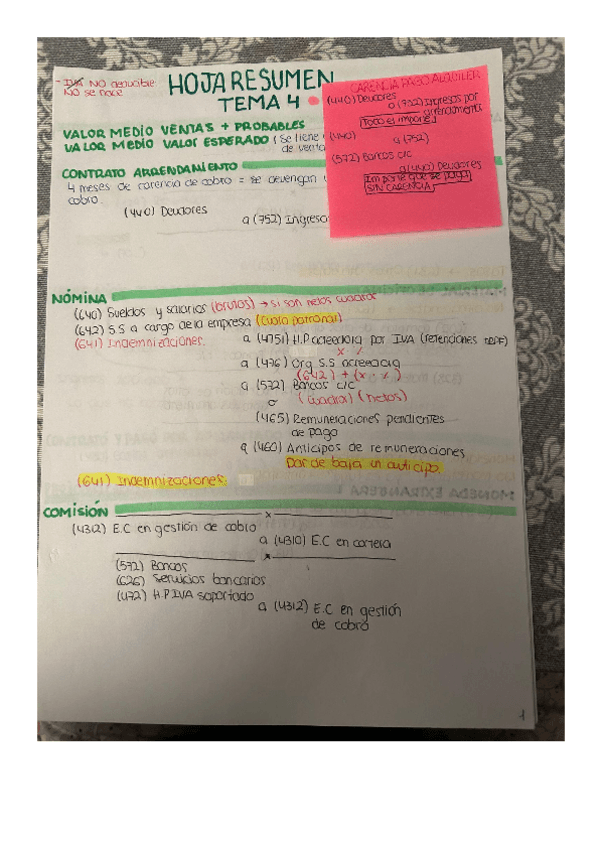 - IVA NO deducible
NO se hace
HOJA RESUMEN
TEMA 4
CARENCIA PAGO ALQUILER
(440) Deudores
a (752) Ingresos por
arrendamientos
Todo el importe
(440)
a (752)
(572) Bancos c/c
a (440) Deudores
Importe que se paga
SIN CARENCIA
VALOR MEDIO VENTAS + PROBABLES
VALOR MEDIO VALOR ESPERADO (Se tiene
de venta
CONTRATO ARRENDAMIENTO
4 meses de carencia de cobro = se devengan
cobro.
(440) Deudores
a (752) Ingreso
NÓMINA
(640) Sueldos y salarios (brutos) → si son netos cuadrar
(642) S.S a cargo de la empresa (cuota patronal)
(641) Indemnizaciones.
a (4751) H.P acreedora por IVA (retenciones IRPF)
a (476) Org S.S acreedora
(642) + (x x)
a (572) Bancos c/c
o (cuadrar) (netos)
(465) Remuneraciones pendientes
de pago
a (460) Anticipos de remuneraciones
Dar de baja un anticipo.
(641) Indemnizaciones.
COMISIÓN
x
(4312) E.C en gestión de cobro
a (4310) E.C en cartera
x
(572) Bancos
(626) Servicios bancarios
(472) H.P IVA soportado
a (4312) E.C en gestión
de cobro
1